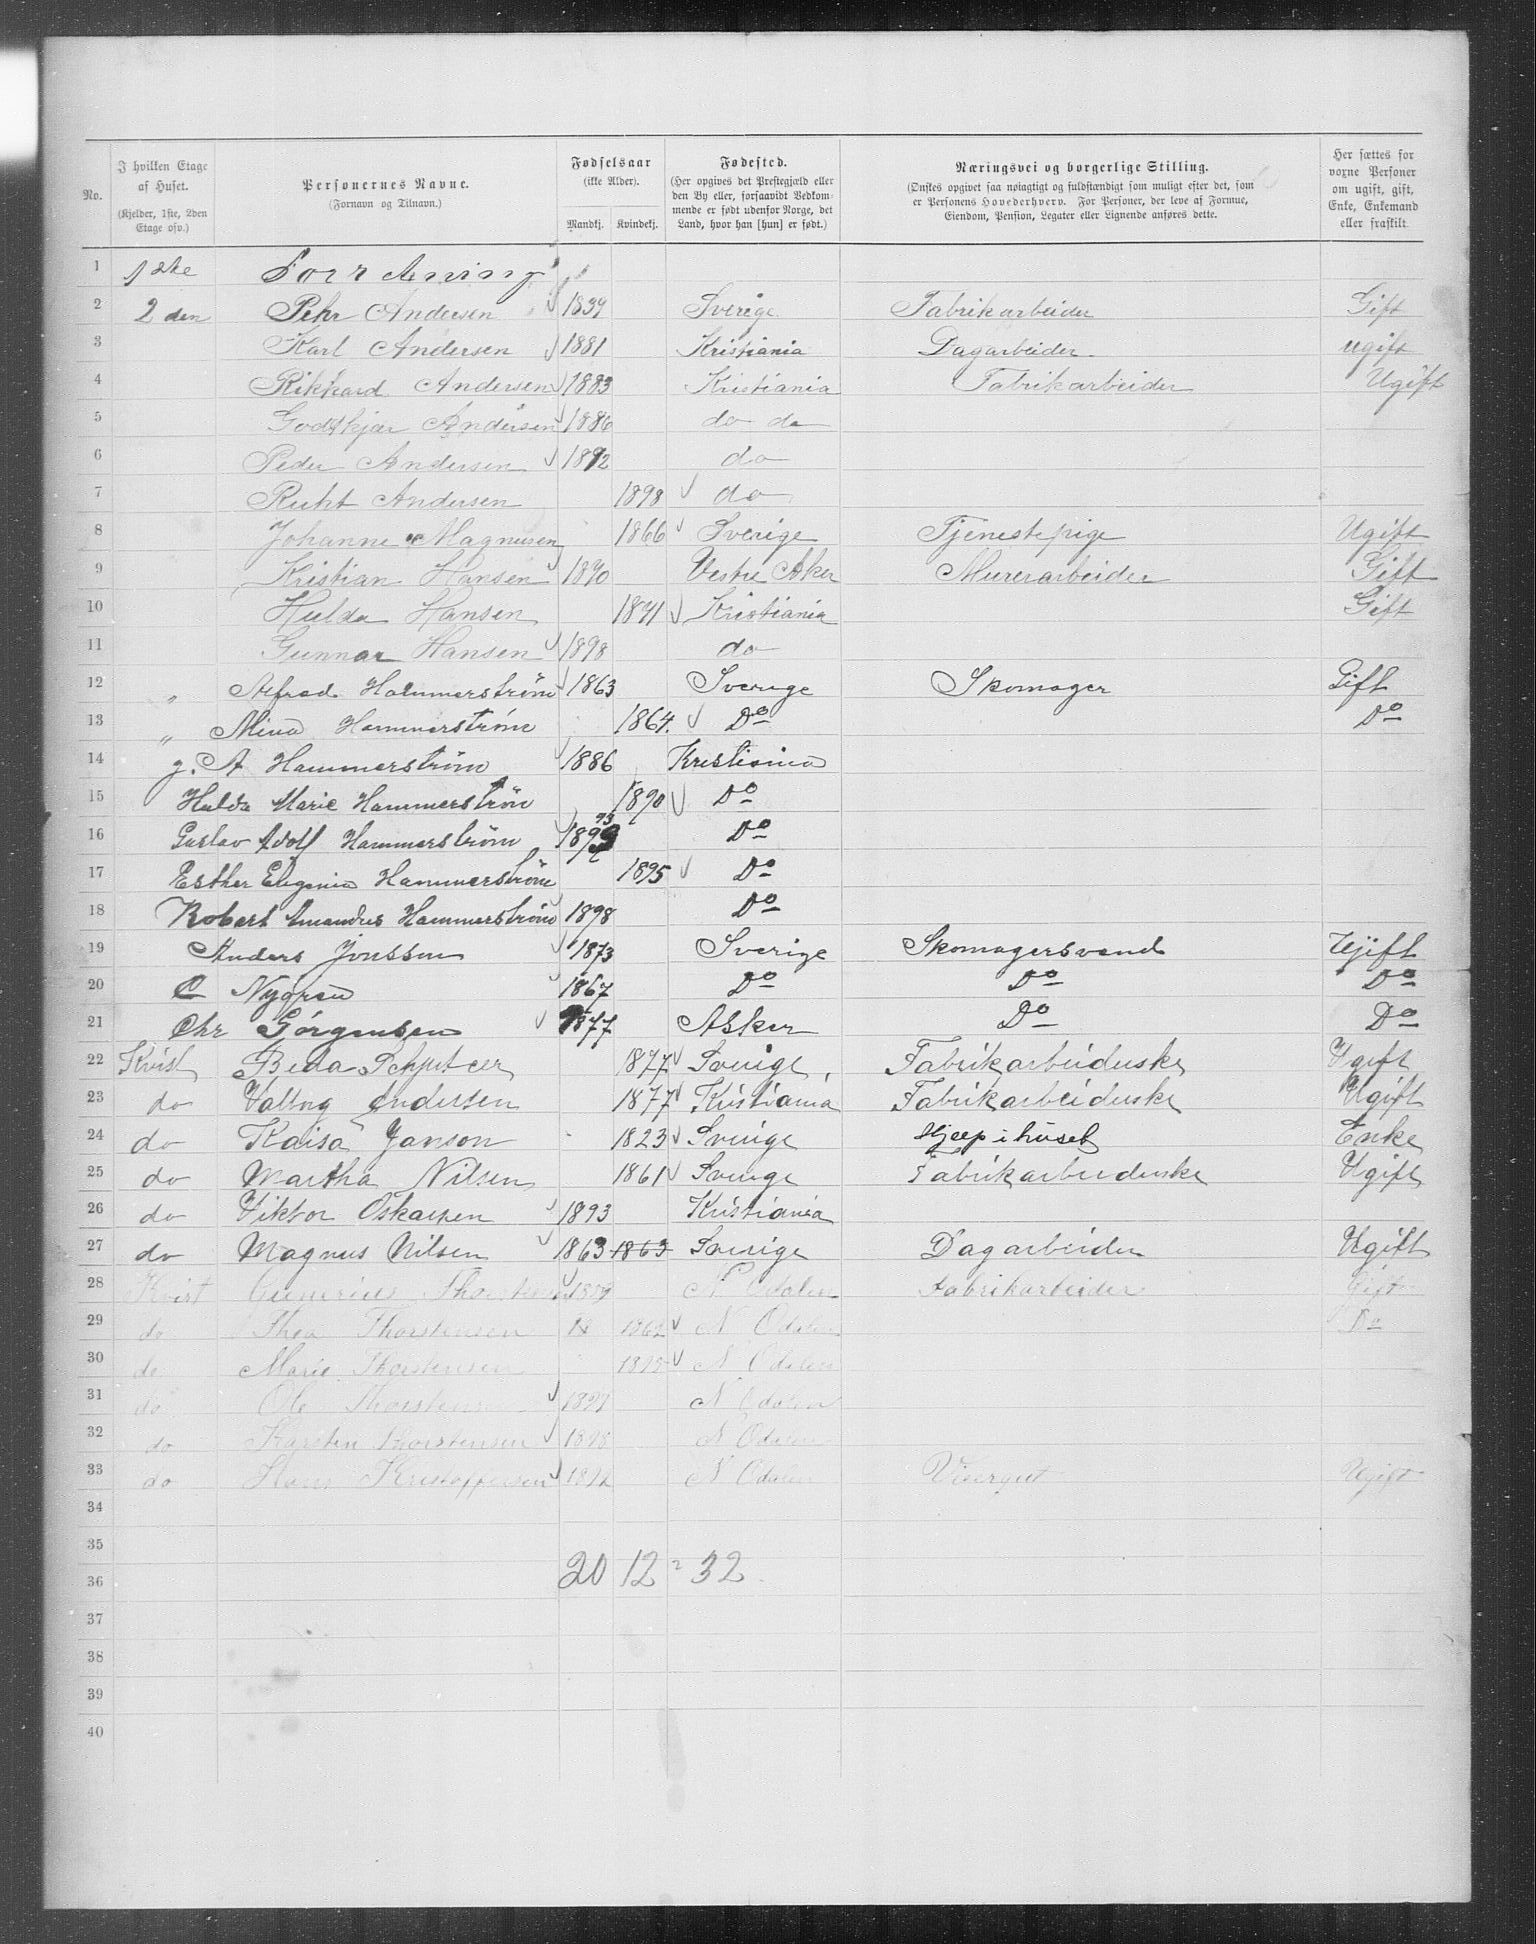 No.
I hvilken Etage af Huset. (Kjelder, 1ste, 2den Etage osv.)
Personernes Navne. (Fornavn og Tilnavn.)
Fødselsaar (ikke Alder). Mandkj. Kvindekj.
Fødested. (Her opgives det Prestegjæld eller den By eller, forsaavidt Vedkommende er født udenfor Norge, det Land, hvor han [hun] er født.)
Næringsvei og borgerlige Stilling. (Ønskes opgivet saa nøiagtigt og fuldstændigt som muligt efter det, som er Personens Hovederhverv. For Personer, der leve af Formue, Eiendom, Pension, Legater eller Lignende anføres dette.
Her sættes for voxne Personer om ugift, gift, Enke, Enkemand eller fraskilt
1 1ste Forretning
2 2den Pehr Andersen 1839 Sverige Fabrikarbeider Gift
3 Karl Andersen 1881 Kristiania Dagarbeider ugift
4 Rikkard Andersen 1883 Kristiania Fabrikarbeider Ugift
5 Godtkjær Andersen 1886 do do
6 Peder Andersen 1892 do
7 Ruht Andersen 1898 do
8 Johanne Magnusen 1866 Sverige Tjenestepige Ugift
9 Kristian Hansen 1870 Vestre Aker Murerarbeider Gift
10 Hulda Hansen 1871 Kristiania Gift
11 Gunnar Hansen 1898 do
12 " Alfred Hammerstrøm 1863 Sverige Skomager Gift
13 " Mina Hammerstrøm 1864. Do Do
14 g. A Hammerstrøm 1886 Kristiania
15 Hulda Marie Hammerstrøm 1890 Do
16 Gustav Adolf Hammerstrøm 1893 93 Do
17 Esther Eugenia Hammerstrøm 1895 Do
18 Robert Amandus Hammerstrøm 1898 Do
19 Anders Jonsson 1873 Sverige Skomagersvend Ugift
20 C Nygren 1867 Do Do Do
21 Chr Jörgensen 1877 Asker Do Do
22 Kvist Beda 1877 Sverige Fabrikarbeiderske Ugift
23 do Valborg Andersen 1877 Kristiania Fabrikarbeiderske Ugift
24 do Kaisa Janson 1823 Sverige Hjelp i huset Enke
25 do Martha Nilsen 1861 Sverige Fabrikarbeiderske Ugift
26 do Viktor Oskarsen 1893 Kristiania
27 do Magnus Nilsen 1863 1863 Sverige Dagarbeider Ugift
28 Kvist Gunerius Thorstensen 1859 N Odalen Fabrikarbeider Gift
29 do Thea Thorstensen 18 1862 N Odalen Do
30 do Marie Thorstensen N Odalen
31 do Ole Thorstensen 1897 N Odalen
32 do Karsten Thorstensen 1898 N Odalen
33 do Hans Kristoffersen N Odalen Visergut Ugift
34
35
36 20 12 = 32
37
38
39
40